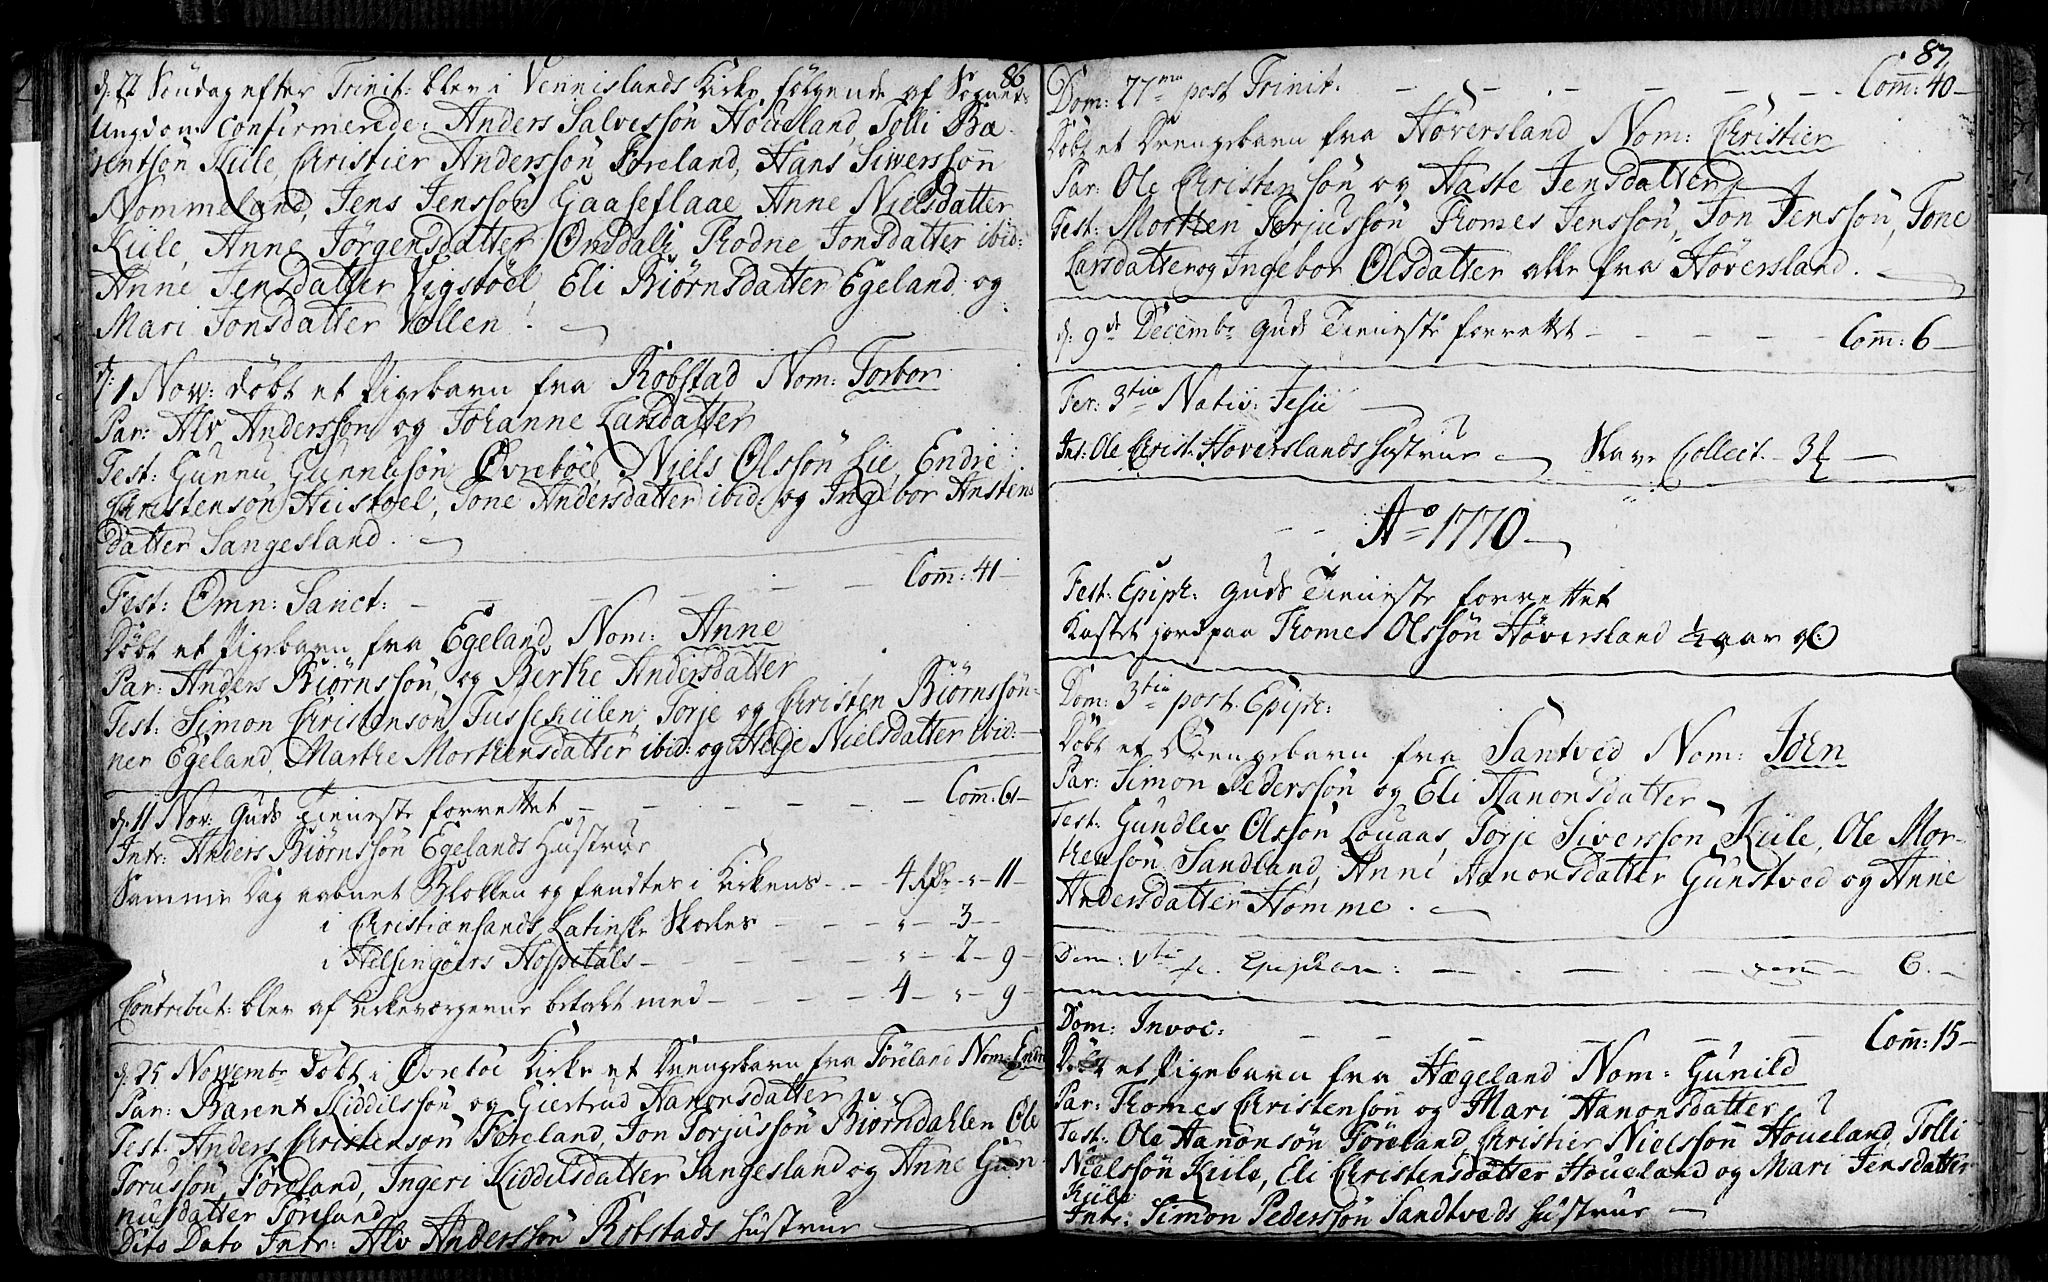 86
d: 22 Søndag efter Trinit: blev i Vennislands Kirke følgende af Sognets
Ungdom Confirmerede: Anders Salvessøn Houeland, Tolli Bæ-
rentsøn Kiile, Christier Anderssøn Føreland, Hans Siwerssøn
Nommeland, Jens Jenssøn Gaaseflaae Anne Nielsdatter
Kiile, Anne Jørgensdatter Omdal, Thodne Jonsdatter ibid:
Anne Jensdatter Vigstøel, Eli Biørnsdatter Egeland og
Mari Jonsdatter Vollen.
d: 1 Nov: døbt et Pigebarn fra Robstad Nom: Torbor
Par: Alv Anderssøn og Johanne Larsdatter
Test: Gunnu Gunnusøn Øvrebøe, Niels Olssøn Lie, Endre
Christensøn Heistøel, Tone Andersdatter ibid: og Ingebor Anstens
datter Sangesland.
Fest: Omn: Sanct: — — — — — Com: 41 —
Døbt et Pigebarn fra Egeland Nom: Anne
Par: Anders Biørnssøn og Berthe Andersdatter
Test: Simon Christensøn Tussekiilen, Torje og Christen Biørnssøn-
ner Egeland, Marthe Morthensdatter ibid: og Helje Nielsdatter ibid:
d: 11 Nov: Guds Tieneste forrettet — — — — — Com: 61 —
Intr: Anders Biørnssøn Egelands Hustrue
Samme Dag aabnet Blokken og fandtes i Kirkens — — 4 Rdr — " — 11 —
i Christiansands Latinske Skoeles — — — " — 3 —
i Helsingøers Hospetals — — — — " — 2 — 9 —
Contribut: blev af Kirkeværgerne betalt med — — — — 4 — " — 9 —
d: 25 Novembr døbt i Øvrebøe Kirke et Drengebarn fra Føreland Nom: Endre
Par: Barent Kiddilssøn og Giertrud Hanonsdatter
Test: Anders Christensøn Føreland, Jon Torjussøn Biørndahlen Ole
Torussøn Føreland, Ingeri Kiddilsdatter Sangesland og Anne Gun-
nusdatter Føreland
Dito Dato Intr: Alv Anderssøn Robstads Hustrue
87
Dom: 27ma post Trinit: — — — — — Com: 40 —
Døbt et Drengebarn fra Høversland Nom: Christier
Par: Ole Christensøn og Haste Jensdatter
Test: Morthen Torjussøn Thomes Jenssøn, Jon Jenssøn, Tone
Larsdatter og Ingebor Olsdatter alle fra Høversland.
d: 9de Decembr Guds Tieneste forrettet — — — — Com: 6 —
Fer: 3tia Nativ: Jesu
Int: Ole Christ: Høverslands Hustrue — Slave Collect. — 3 ß —
Ao 1770
Fest: Epiph: Guds Tieneste forrettet
Kastet jord paa Thomes Olssøn Høversland ¼ aar gl:
Dom: 3tia post Epiph:
Døbt et Drengebarn fra Santved Nom: Joen
Par: Simon Pederssøn og Eli Hanonsdatter
Test: Gundlev Olssøn Louaas, Torje Siverssøn Kiile, Ole Mor-
thensøn Sandland, Anne Hanonsdatter Gunstved og Anne
Andersdatter Homme.
Dom: Vta p. Epiphan: — — — — Com — 6. —
Dom: Invoc: — — — — — Com: 15 —
Døbt et Pigebarn fra Hægeland Nom: Gunild
Par: Thomes Christensøn og Mari Hanonsdatter
Test: Ole Hanonsøn Føreland, Christier Nielssøn Houeland, Tolli
Nielssøn Kiile, Eli Christensdatter Houeland og Mari Jensdatter
Kiile
Intr: Simon Pederssøn Sandtveds Hustrue —